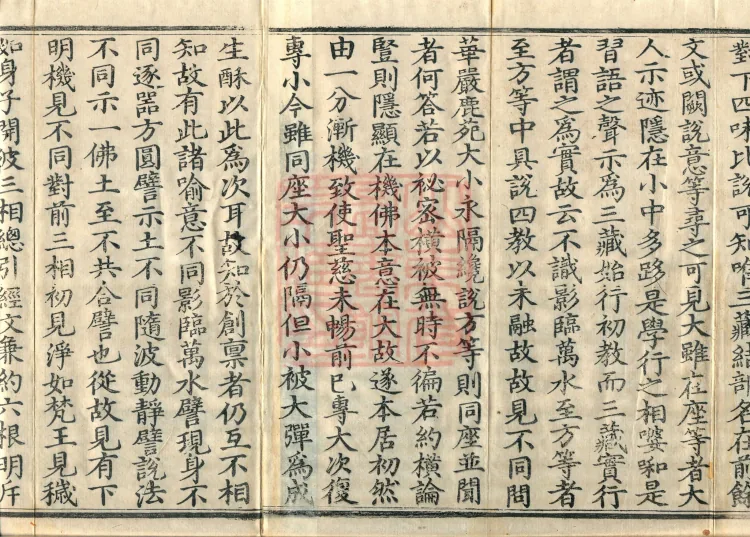 對下四味比說可知唯三藏結部名在前餘
文或闕說意等尋之可見大雖在座等者大
人示迹隱在小中多跢是學行之相嘙啝是
習語之聲示為三藏始行初教而三藏實行
者謂之為實故云不識影臨萬水至方等者
至方等中具說四教以未融故故見不同問
華嚴鹿苑大小永隔纔說方等則同座並聞
者何答若以祕密橫被無時不徧若約橫論
豎則隱顯在機佛本意在大故遂本居初然
由一分漸機致使聖慈未暢前已專大次復
專小今雖同座大小仍隔但小被大彈為成
生酥以此為次耳故知於創稟者仍互不相
知故有此諸喻意不同影臨萬水譬現身不
同逐器方圓譬示土不同隨波動靜譬說法
不同示一佛土至不共合譬也從故見有下
明機見不同對前三相初見淨如梵王見穢
如身子開彼三相總引經文兼約六根明斤